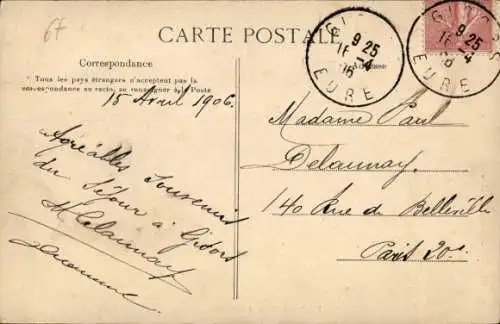 67
CARTE POSTALE
Correspondance
Tous les pays étrangers n'acceptent pas la
correspondance au recto, se renseigner à la Poste
Adresse
GISORS
9 25
16 -4
06
EURE
GISORS
9 25
16 -4
06
EURE
15 Avril 1906.
Agréables Souvenirs
du Séjour à Gisors
Delaunay
Madame Paul
Delaunay
140 Rue de Belleville
Paris 20e